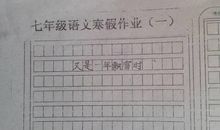 七年级语文寒假作业（一）
又是一年飘雪时